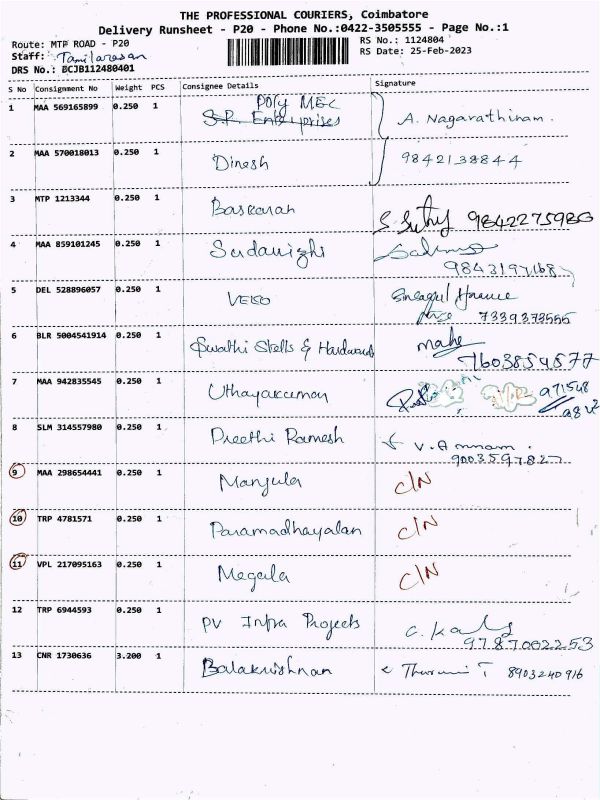 THE PROFESSIONAL COURIERS, Coimbatore
Delivery Runsheet - P20 - Phone No.:0422-3505555 - Page No.:1
Route: MTP ROAD - P20
RS No.: 1124804
Staff: Tamilarasan
RS Date: 25-Feb-2023
DRS No.: BCJB112480401
S No Consignment No Weight PCS Consignee Details Signature
1 MAA 569165899 0.250 1 Poly MEC
S.R. Enterprises A. Nagarathinam.
2 MAA 570018013 0.250 1 Dinesh 9842138844
3 MTP 1213344 0.250 1 Baskaran 9842275980
4 MAA 859101245 0.250 1 Sudanizhi
9843197168
5 DEL 528896057 0.250 1 VEKO
7339373555
6 BLR 5004541914 0.250 1 Swathi Stells & Hardwares mahe
7603854577
7 MAA 942835545 0.250 1 Uthayakumar 971548
8 SLM 314557980 0.250 1 Preethi Ramesh V. Amnam.
9003597827
9 MAA 298654441 0.250 1 Manjula C/N
10 TRP 4781571 0.250 1 Paramadhayalan C/N
11 VPL 217095163 0.250 1 Megala C/N
12 TRP 6944593 0.250 1 PV Infra Projects C. Kala
9787002253
13 CNR 1730636 3.200 1 Balakrishnan 8903240916